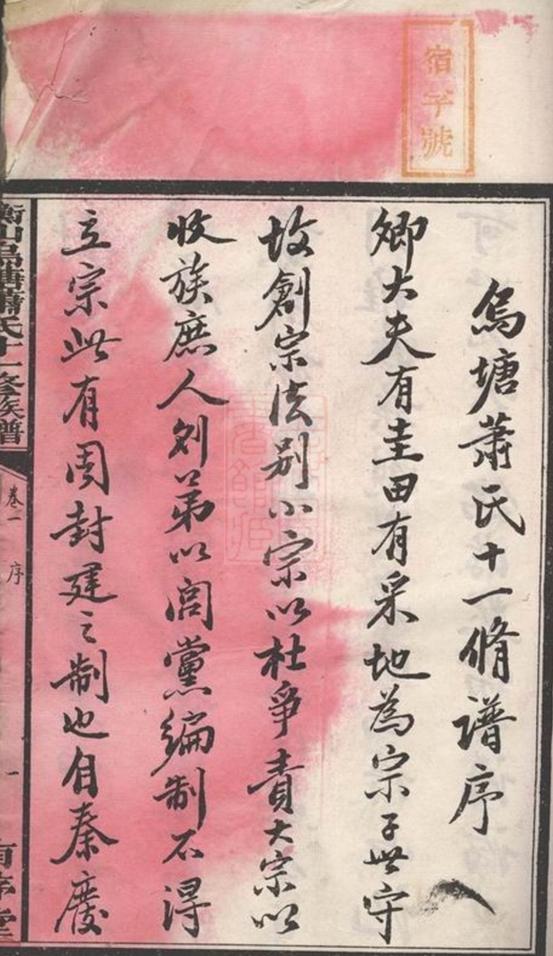 宿字號
烏塘蕭氏十一脩譜序
卿大夫有圭田有采地為宗子世守
故創宗法別小宗以杜爭責大宗以
收族庶人則第以閭黨編制不得
立宗此有周封建之制也自秦廢
衡山烏塘蕭氏十一修族譜
卷一 序
一